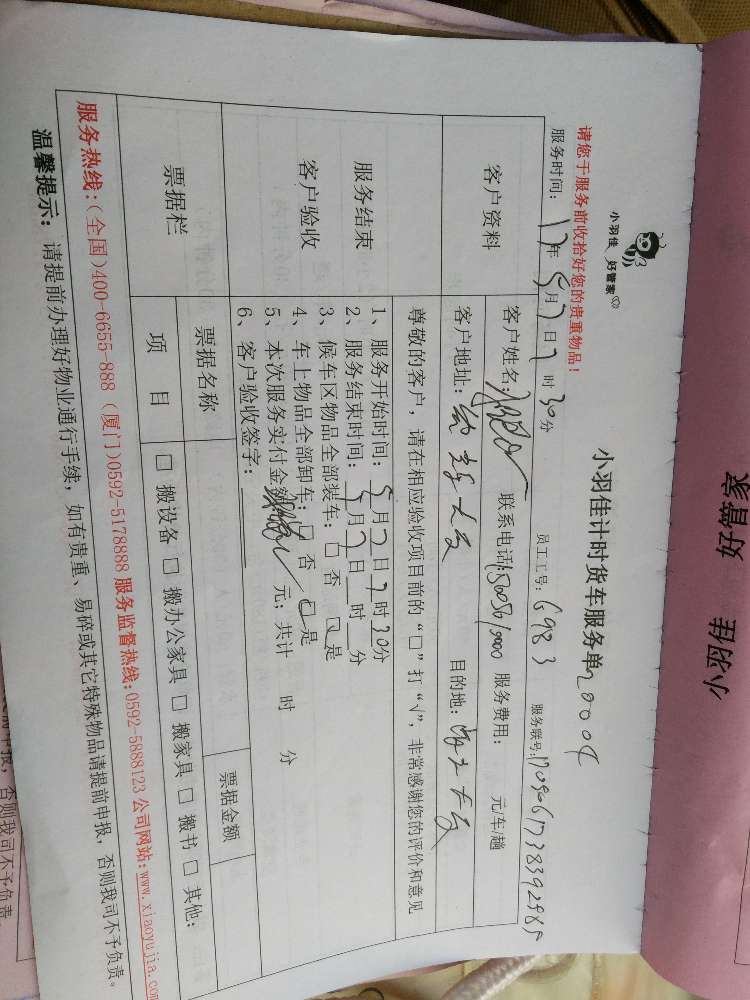 小羽佳 好管家
小羽佳 好管家
小羽佳计时货车服务单 20004
请您于服务前收拾好您的贵重物品！
服务时间：17年5月7日7时30分 员工工号：6983 服务联号：
客户资料
客户姓名： 联系电话： 服务费用： 元车/趟
客户地址： 目的地：
尊敬的客户，请在相应验收项目前的“□”打“√”，非常感谢您的评价和意见
服务结束
客户验收
1、服务开始时间：5月7日7时30分
2、服务结束时间：5月7日 时 分
3、候车区物品全部装车：□否 □是
4、车上物品全部卸车：□否 □是
5、本次服务实付金额 元；共计 时 分
6、客户验收签字：
票据栏
票据名称 票据金额
项目 □搬设备 □搬办公家具 □搬家具 □搬书 □其他：
服务热线：(全国)400-6655-888 (厦门)0592-5178888 服务监督热线：0592-5888123 公司网站：www.xiaoyujia.com
温馨提示：请提前办理好物业通行手续，如有贵重、易碎或其它特殊物品请提前申报，否则我司不予负责。
申报，否则我司不予负责。